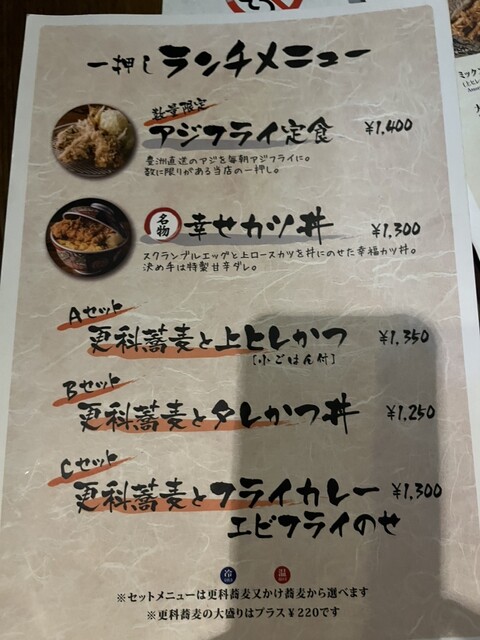 一押しランチメニュー
数量限定
アジフライ定食 ¥1,400
豊洲直送のアジを毎朝アジフライに。
数に限りがある当店の一押し。
名物 幸せカツ丼 ¥1,300
スクランブルエッグと上ロースカツを丼にのせた幸福カツ丼。
決め手は特製甘辛ダレ。
Aセット
更科蕎麦と上ヒレかつ ¥1,350
[小ごはん付]
Bセット
更科蕎麦とタレかつ丼 ¥1,250
Cセット
更科蕎麦とフライカレー ¥1,300
エビフライのせ
冷 温
※セットメニューは更科蕎麦又かけ蕎麦から選べます
※更科蕎麦の大盛りはプラス¥220です
ミックス